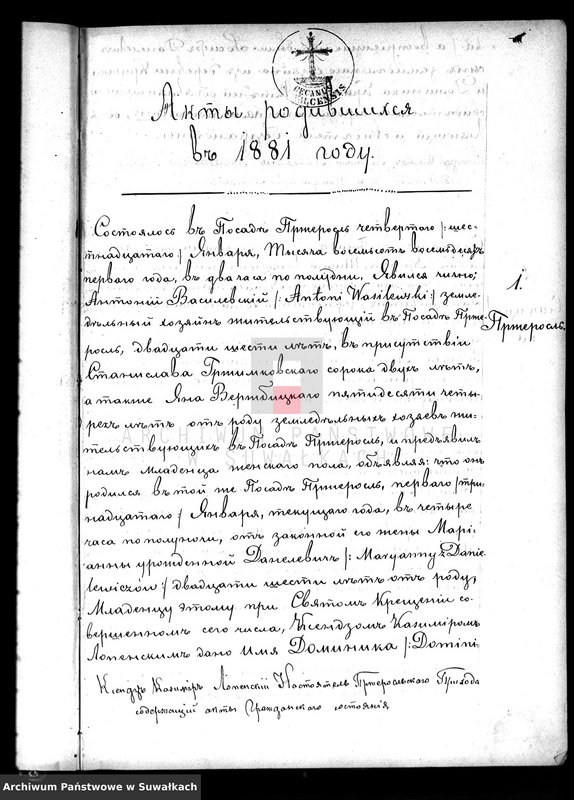 Акты родившихся
въ 1881 году.
Состоялось въ Посадѣ Пржеросль четвертаго |: шес-
тнадцатаго :| Января, тысяча восемьсотъ восемьдесятъ
перваго года, въ два часа по полудни, Явился лично;
Антоній Василевскій |: Antoni Wasilewski :| земле-
дѣльный хозяинъ жительствующій въ Посадѣ Прже-
росль, двадцати шести лѣтъ, въ присутствіи
Станислава Гржимковскаго сорока двухъ лѣтъ,
а также Яна Вержбицкаго пятидесяти четы-
рехъ лѣтъ отъ роду земледѣльныхъ хозяевъ жи-
тельствующихъ въ Посадѣ Пржеросль, и предъявилъ
намъ младенца женскаго пола, объявляя: что онъ
родился въ той же Посадѣ Пржеросль, перваго |три-
надцатаго| Января, текущаго года, въ четыре
часа по полуночи, отъ законной его жены Марі-
анны урожденной Данелевичъ |: Maryanny z Danie-
lewiczów :| двадцати шести лѣтъ отъ роду,
Младенцу этому при Святомъ Крещеніи со-
вершенномъ сего числа, Ксендзомъ Казиміромъ
Лопенскимъ дано имя Доминика |: Domini-
Ксендзъ Казиміръ Лопенскій Настоятель Пржеросльскаго Прихода
содержащій акты Гражданскаго состоянія
1.
Пржеросль.
ARCHIWUM PAŃSTWOWE
W SUWAŁKACH
Archiwum Państwowe w Suwałkach